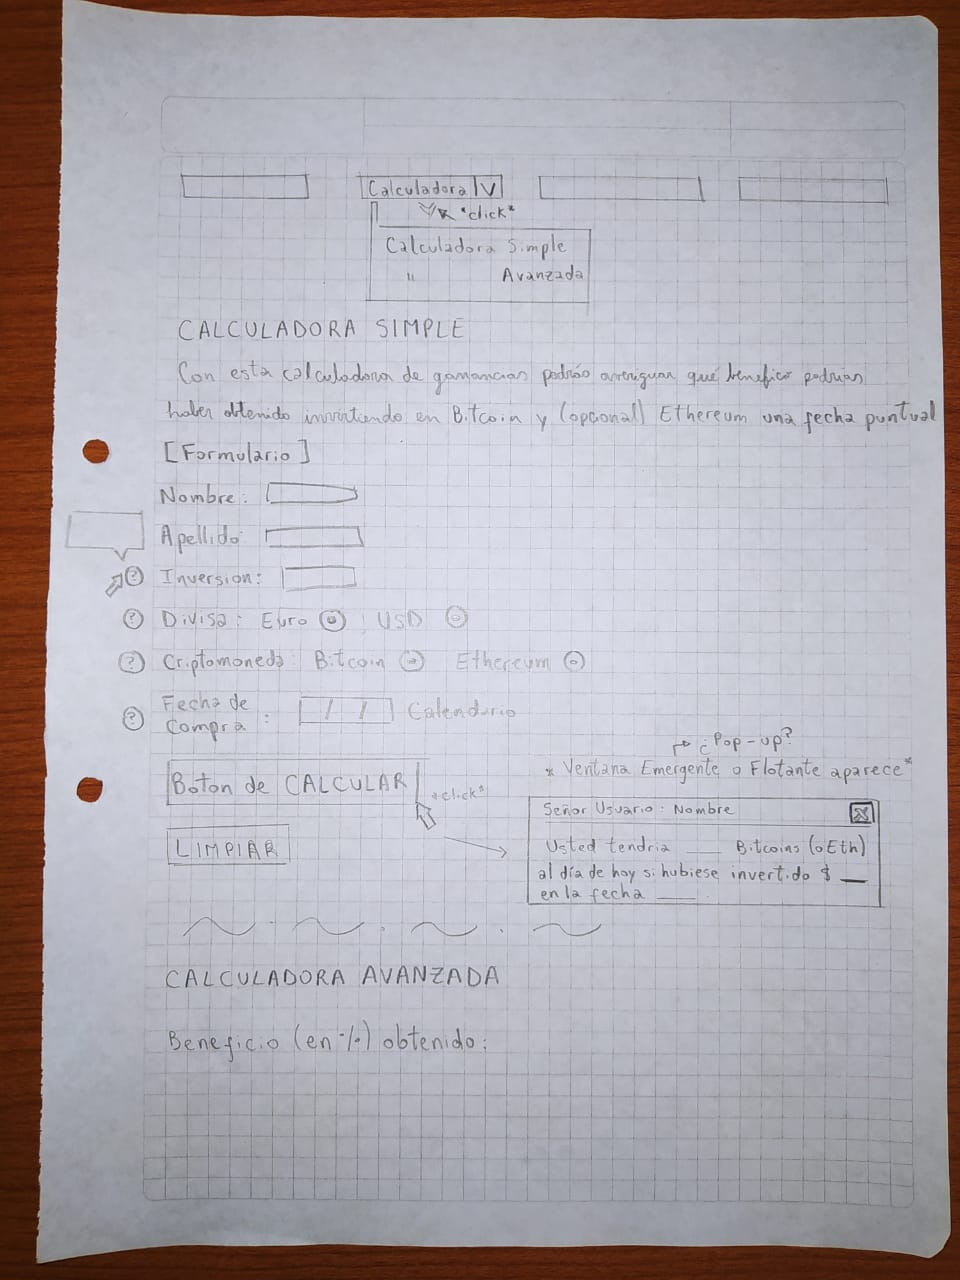 Calculadora V
*click*
Calculadora Simple
" Avanzada
CALCULADORA SIMPLE
Con esta calculadora de ganancias podrás averiguar qué benefico podrías
haber obtenido invirtiendo en Bitcoin y (opcional) Ethereum una fecha puntual
[Formulario]
Nombre:
Apellido:
? Inversion:
? Divisa: Euro ; USD
? Criptomoneda: Bitcoin Ethereum
? Fecha de
Compra : / / Calendario
¿Pop-up?
* Ventana Emergente o Flotante aparece*
Boton de CALCULAR
*click*
Señor Usuario: Nombre X
Usted tendria ___ Bitcoins (o Eth)
al día de hoy si hubiese invertido $ __
en la fecha ___.
LIMPIAR
CALCULADORA AVANZADA
Beneficio (en %) obtenido: